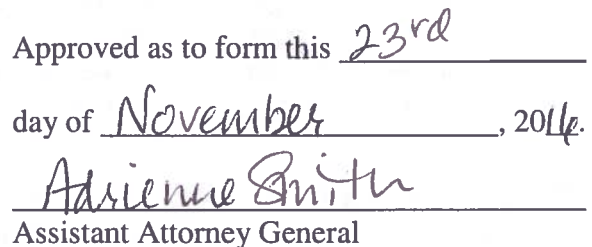 Approved as to form this 23rd
day of November, 2016.
Adrienne Smith
Assistant Attorney General